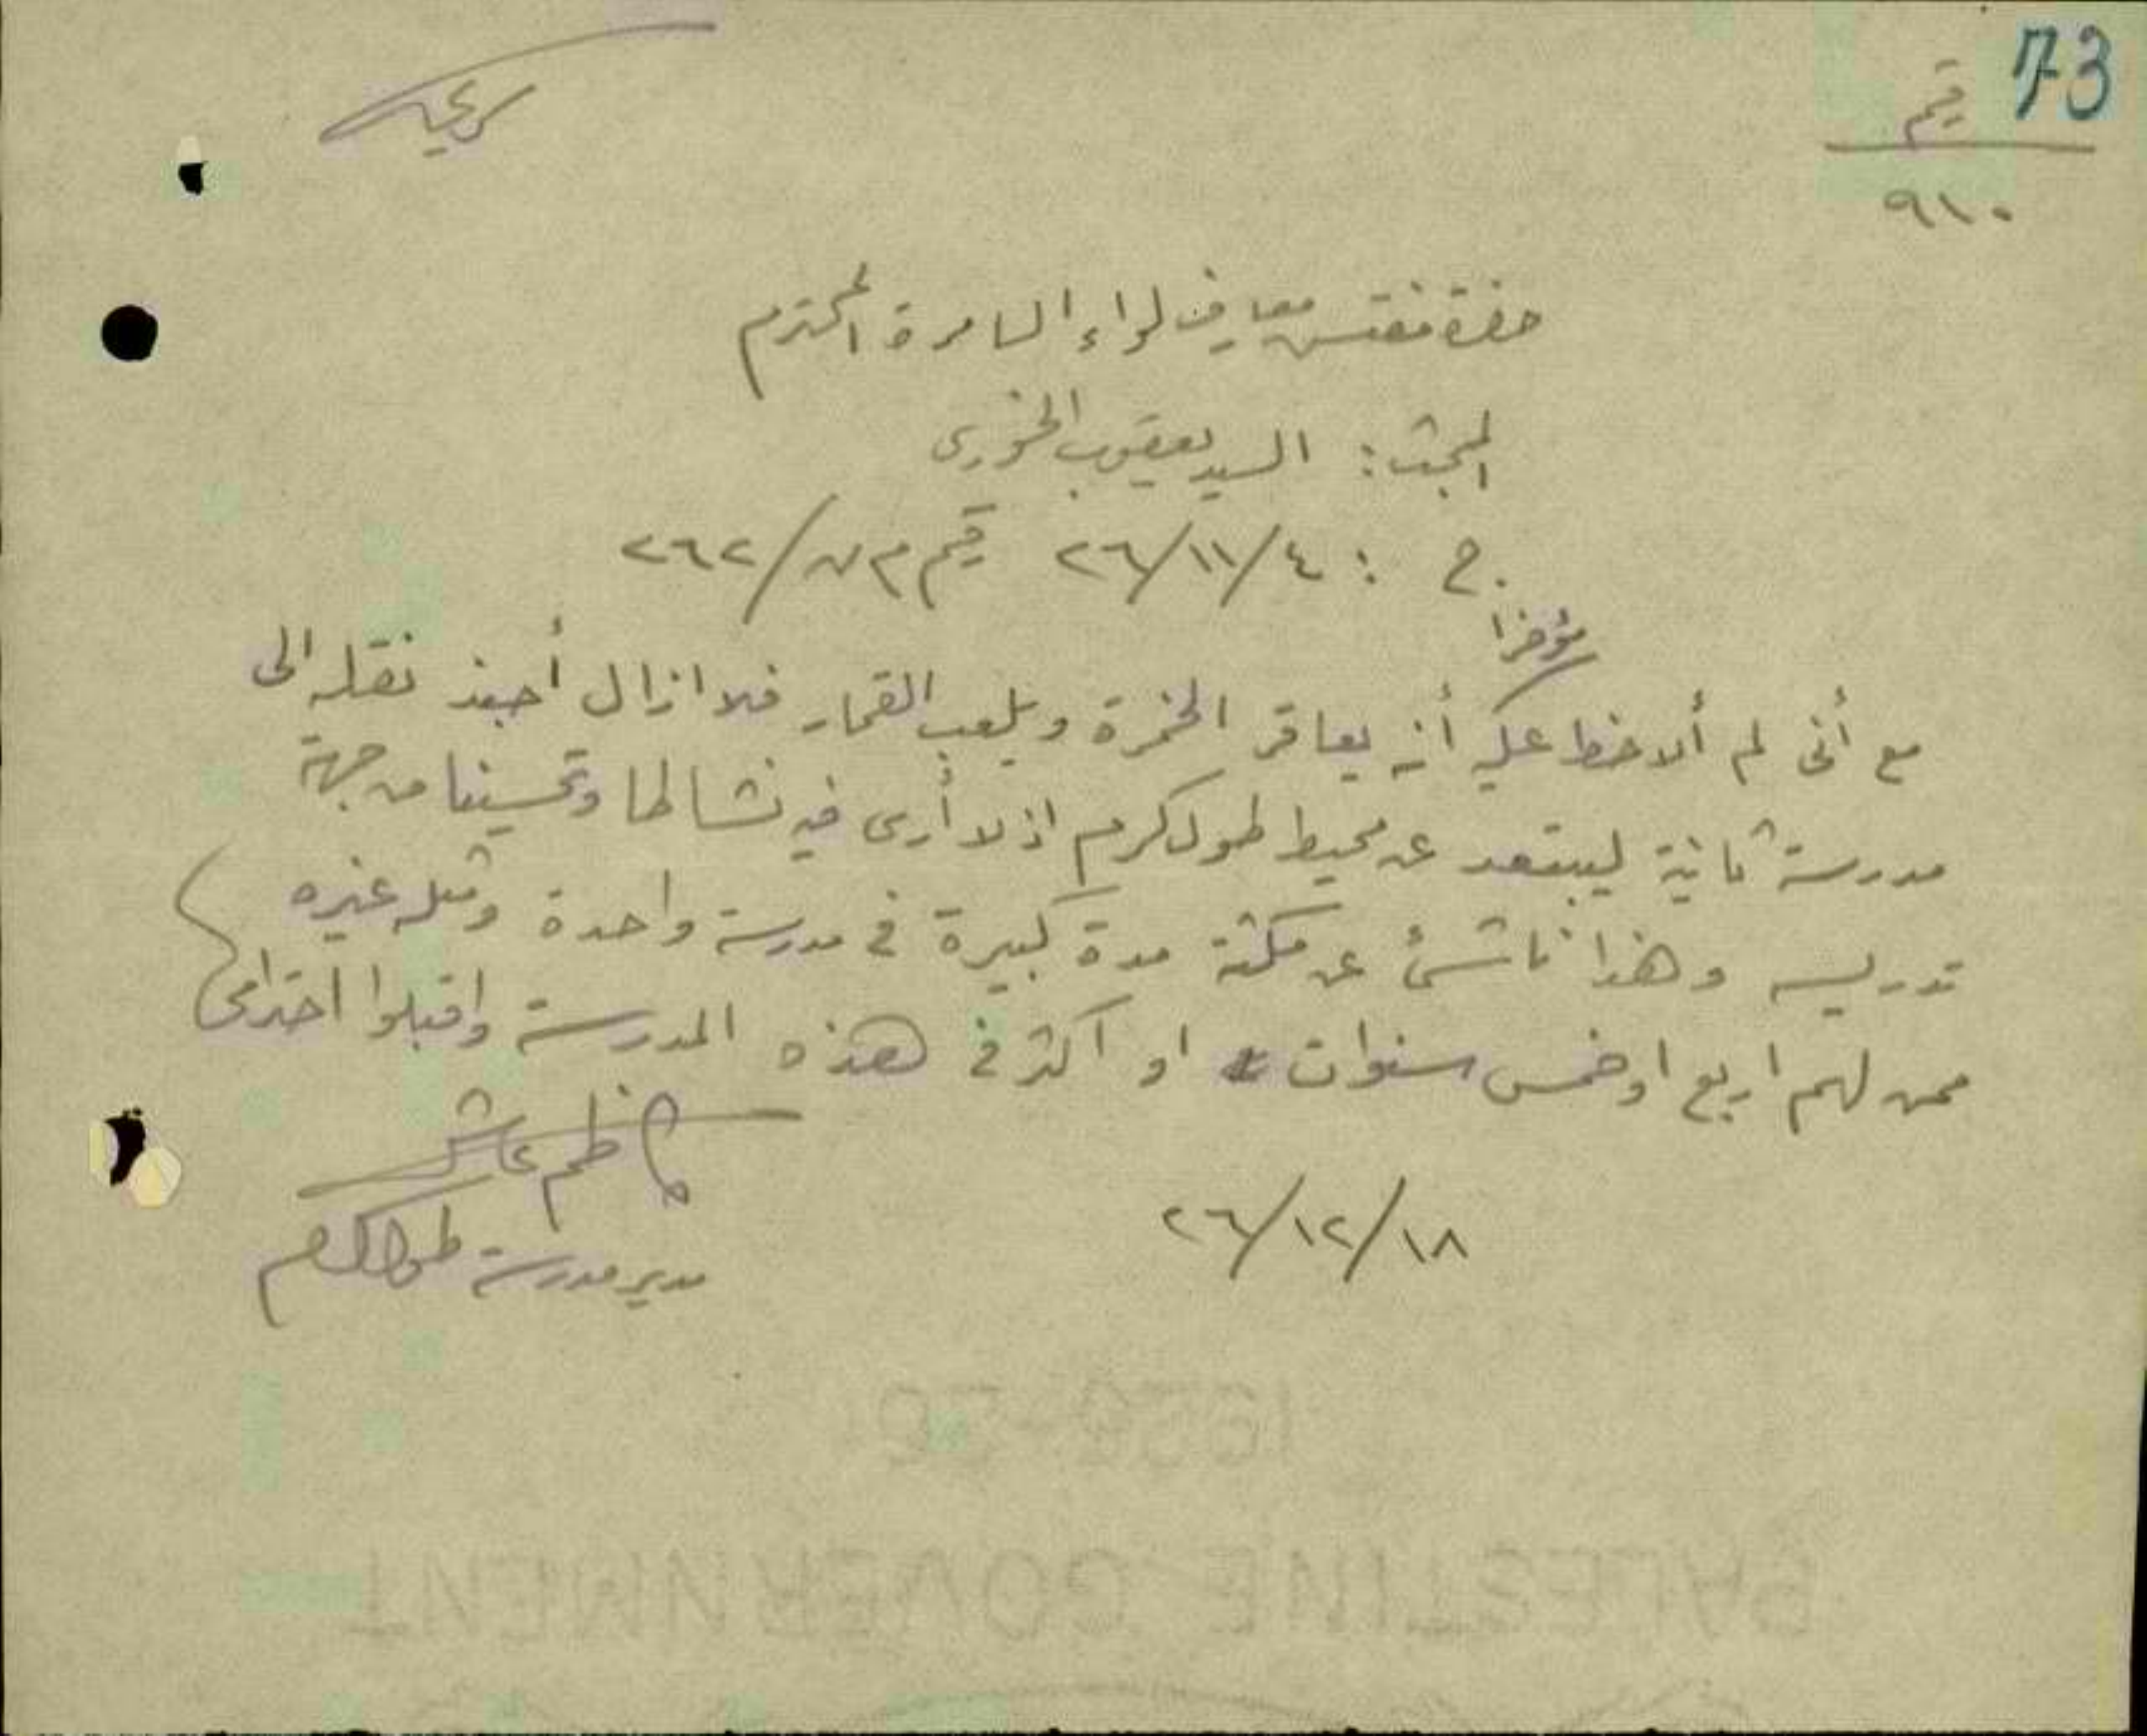 73
رقم
٩١٠
سرية
حضرة مفتش معارف لواء السامرة المحترم
المبحث: السيد يعقوب الخوري
ج : ٢٦/١١/٤ رقم م ن/٢٦٢
مؤخرا
مع أني لم ألاحظ عليه أنه يعاقر الخمرة ويلعب القمار فلا ازال أحبذ نقله الى
مدرسة ثانية ليبتعد عن محيط طولكرم اذ لا أرى فيه نشاطا وتحسينا من جهة
تدريسه وهذا ناشئ عن مكثه مدة كبيرة في مدرسة واحدة ومثله غيره
ممن لهم اربع او خمس سنوات او اكثر في هذه المدرسة واقبلوا احترامي
كاظم
٢٦/١٢/١٨
مدير مدرسة طولكرم
PALESTINE GOVERNMENT